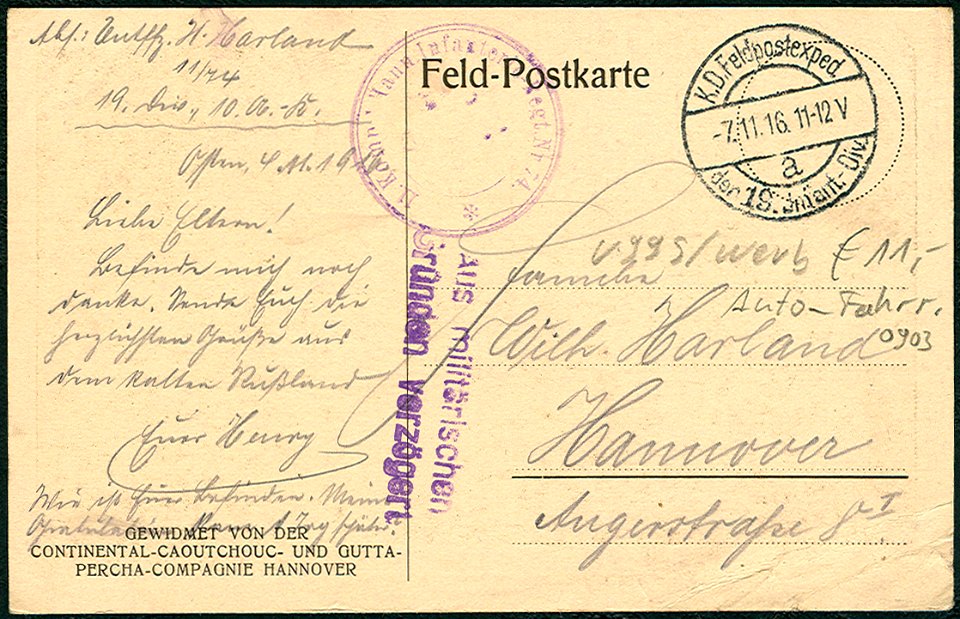 Abs.: Untffz. H. Harland
11/74
19. Div., 10. A.-K.
Osten, 4.11.1916
Liebe Eltern!
Befinde mich noch
danke. Sende Euch die
herzlichsten Grüße aus
dem kalten Rußland
Euer Henry
Wie ist Euer Befinden. Meine
GEWIDMET VON DER
CONTINENTAL-CAOUTCHOUC- UND GUTTA-
PERCHA-COMPAGNIE HANNOVER
Infanterie Regt. Nr. 74.
Feld-Postkarte
K.D. Feldpostexped.
-7.11.16. 11-12 V
a
der 19. Infant.-Div.
Aus militärischen
Gründen verzögert
€ 11,-
Auto-Fahrr.
0903
Familie
Wilh. Harland
Hannover
Angerstraße 8 I